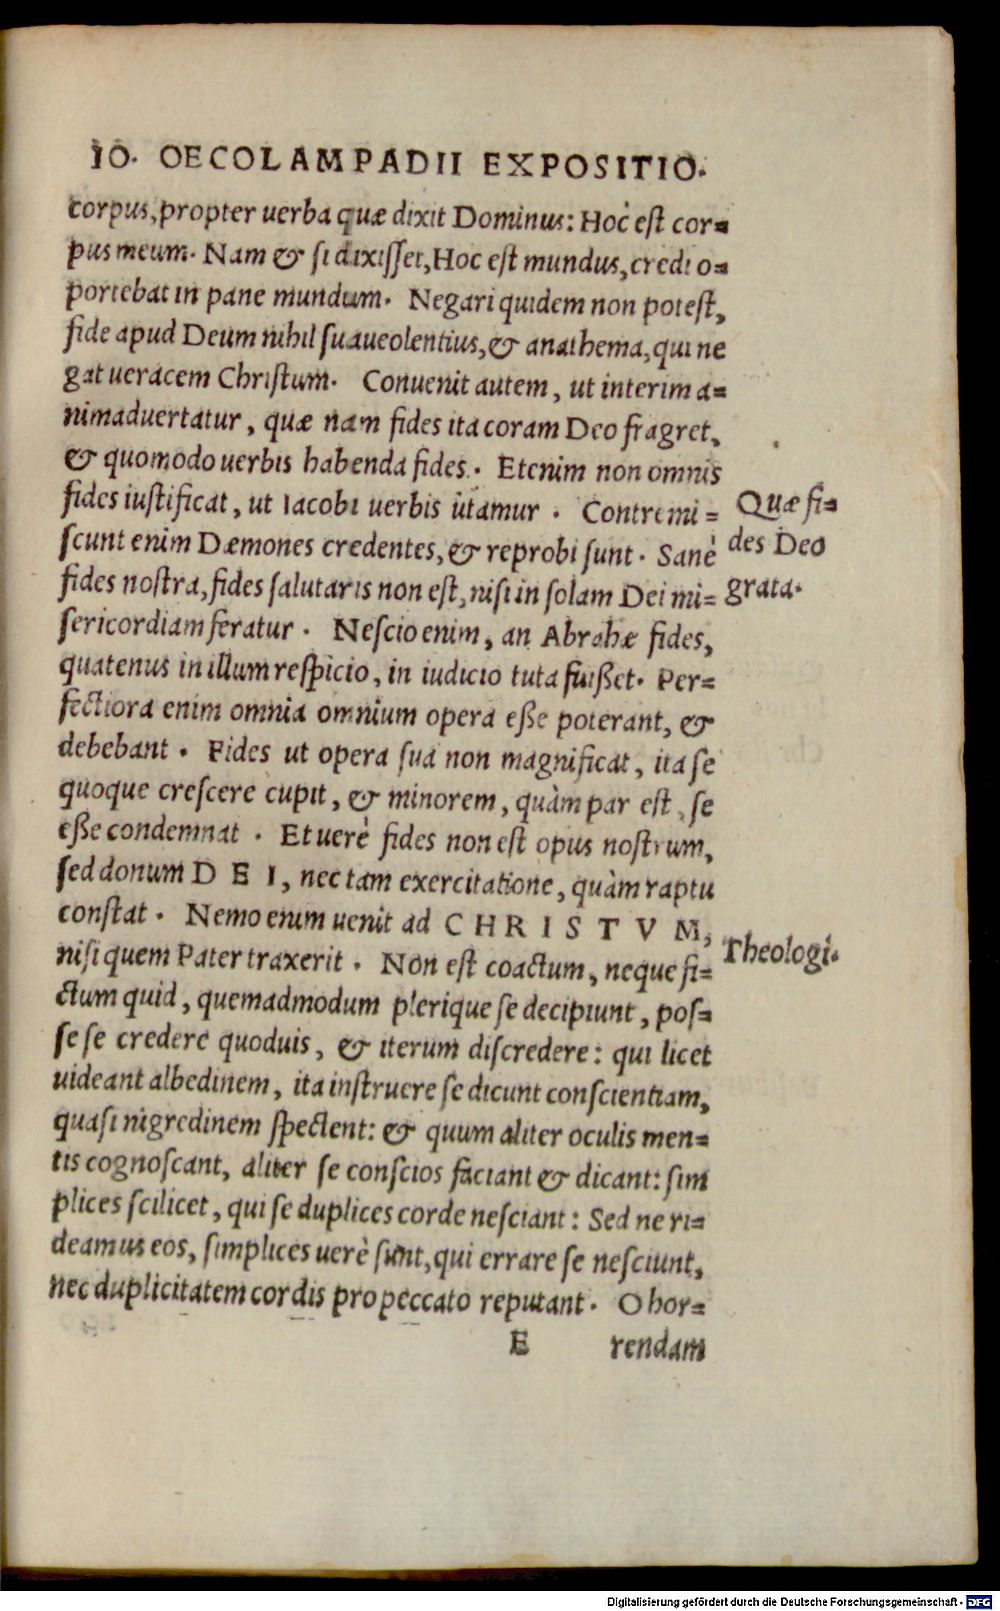 IO. OECOLAMPADII EXPOSITIO.
corpus, propter uerba quæ dixit Dominus: Hoc est cor=
pus meum. Nam & si dixisset, Hoc est mundus, credi o=
portebat in pane mundum. Negari quidem non potest,
fide apud Deum nihil suaueolentius, & anathema, qui ne
gat ueracem Christum. Conuenit autem, ut interim a=
nimaduertatur, quæ nam fides ita coram Deo fragret,
& quomodo uerbis habenda fides. Etenim non omnis
fides iustificat, ut Iacobi uerbis utamur. Contremi=
scunt enim Dæmones credentes, & reprobi sunt. Sanè
fides nostra, fides salutaris non est, nisi in solam Dei mi=
sericordiam feratur. Nescio enim, an Abrahæ fides,
quatenus in illum respicio, in iudicio tuta fuißet. Per=
fectiora enim omnia omnium opera eße poterant, &
debebant. Fides ut opera sua non magnificat, ita se
quoque crescere cupit, & minorem, quàm par est, se
eße condemnat. Et uerè fides non est opus nostrum,
sed donum D E I, nec tam exercitatione, quàm raptu
constat. Nemo enim uenit ad C H R I S T V M,
nisi quem Pater traxerit. Non est coactum, neque fi=
ctum quid, quemadmodum plerique se decipiunt, pos=
se se credere quoduis, & iterum discredere: qui licet
uideant albedinem, ita instruere se dicunt conscientiam,
quasi nigredinem spectent: & quum aliter oculis men=
tis cognoscant, aliter se conscios faciant & dicant: sim
plices scilicet, qui se duplices corde nesciant: Sed ne ri=
deamus eos, simplices uerè sunt, qui errare se nesciunt,
nec duplicitatem cordis pro peccato reputant. O hor=
E rendam
Quæ fi=
des Deo
grata.
Theologi.
Digitalisierung gefördert durch die Deutsche Forschungsgemeinschaft - DFG